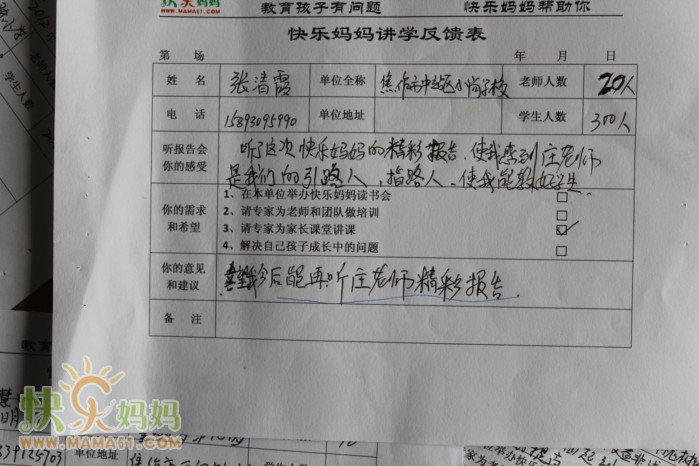 快乐妈妈
WWW.MAMA51.COM
教育孩子有问题 快乐妈妈帮助你
快乐妈妈讲学反馈表
第 场 年 月 日
姓 名 张清霞 单位全称 焦作市中站区小尚学校 老师人数 20人
电 话 15893095990 单位地址 学生人数 300人
听报告会
你的感受
听了这次快乐妈妈的精彩报告,使我感到庄老师
是我们的引路人,指路人、使我能教好学生
你的需求
和希望
1、在本单位举办快乐妈妈读书会
2、请专家为老师和团队做培训
3、请专家为家长课堂讲课
4、解决自己孩子成长中的问题
你的意见
和建议
今后能再听庄老师精彩报告.
备 注
快乐妈妈
WWW.MAMA51.COM
单位地址